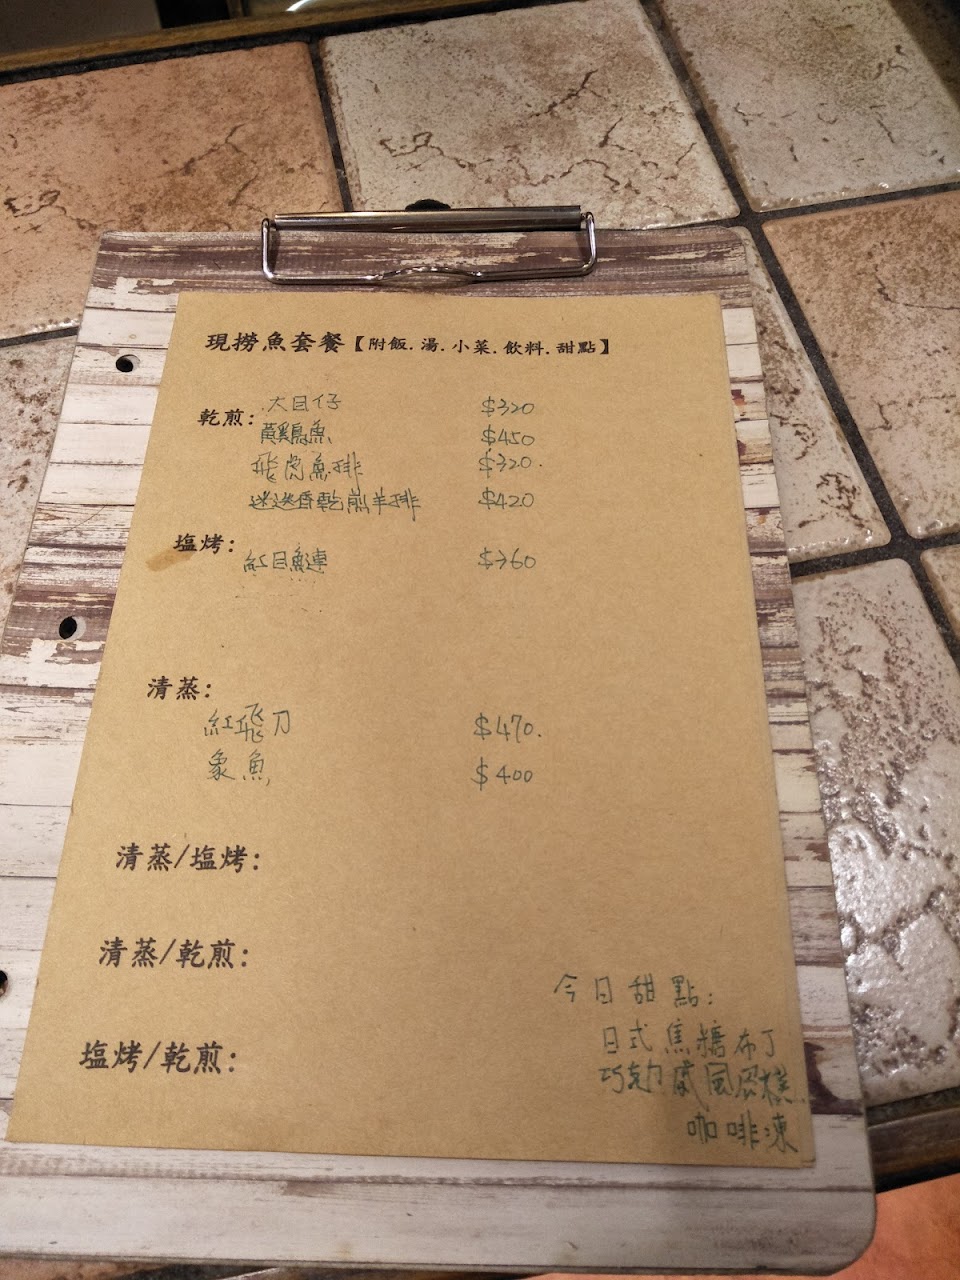 現撈魚套餐【附飯.湯.小菜.飲料.甜點】
乾煎: 大目仔 $320
黃鷄魚 $450
飛虎魚排 $320.
迷迭香乾煎羊排 $420
塩烤:
紅目鰱 $360
清蒸:
紅飛刀 $470.
象魚 $400
清蒸/塩烤:
清蒸/乾煎:
塩烤/乾煎:
今日甜點:
日式焦糖布丁
巧克力戚風蛋糕
咖啡凍